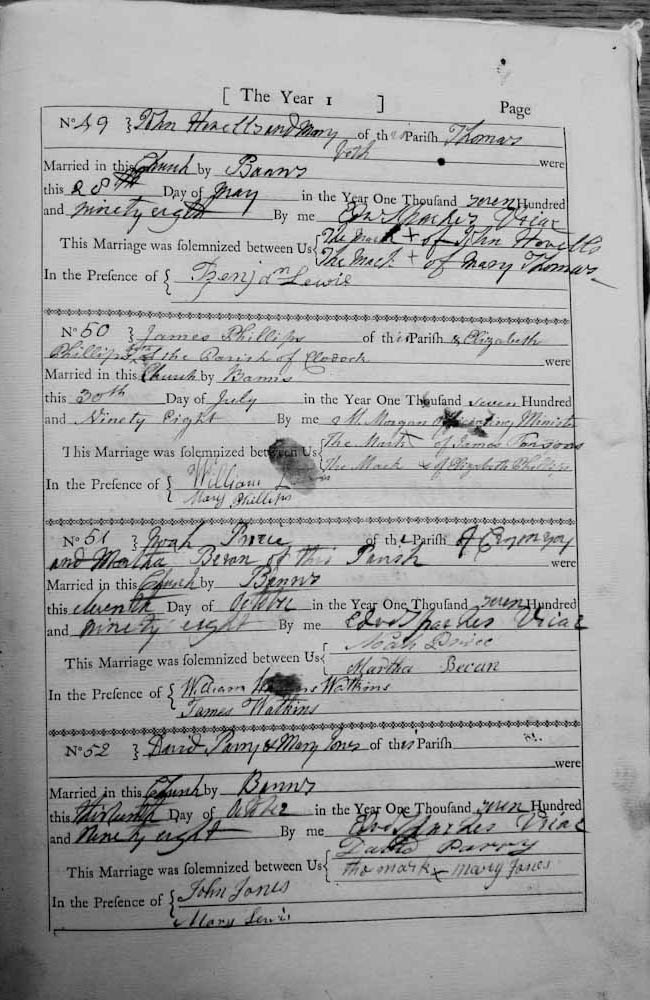 [ The Year 1 ] Page
No 49 } John Howells and Mary of this Parish Thomas
both were
Married in this Church by Banns
this 28th Day of May in the Year One Thousand seven Hundred
and ninety eight By me Vicar
This Marriage was solemnized between Us { The Mark + of John Howells
The Mark + of Mary Thomas
In the Presence of { Benjan Lewis
No 50 } James Phillips of this Parish & Elizabeth
Phillips of the Parish of Clodock were
Married in this Church by Banns
this 30th Day of July in the Year One Thousand seven Hundred
and Ninety Eight By me M Morgan Officiating Minister
This Marriage was solemnized between Us { The Mark of James Parsons
The Mark x of Elizabeth Phillips
In the Presence of { William
Mary Phillips
No 51 } Noah Price of the Parish of
and Martha Bevan of this Parish were
Married in this Church by Banns
this eleventh Day of October in the Year One Thousand seven Hundred
and ninety eight By me Vicar
This Marriage was solemnized between Us { Noah Price
Martha Becan
In the Presence of { William Watkins
James Watkins
No 52 } David Parry & Mary Jones of this Parish
were
Married in this Church by Banns
this thirteenth Day of October in the Year One Thousand seven Hundred
and Ninety eight By me Vicar
This Marriage was solemnized between Us { David Parry
the mark x Mary Jones
In the Presence of { John Jones
Mary Lewis